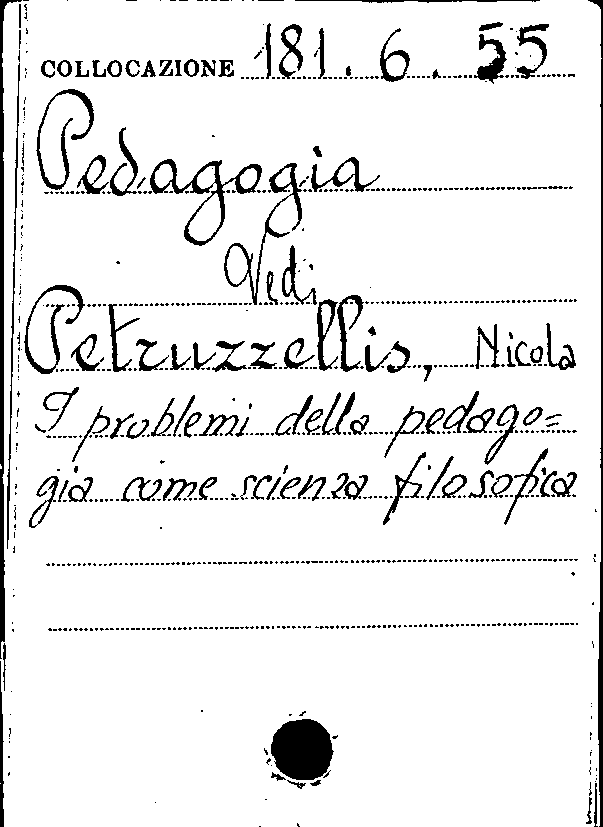 COLLOCAZIONE 181. 6. 55
Pedagogia
Vedi
Petruzzellis, Nicola
I problemi della pedago=
gia come scienza filosofica